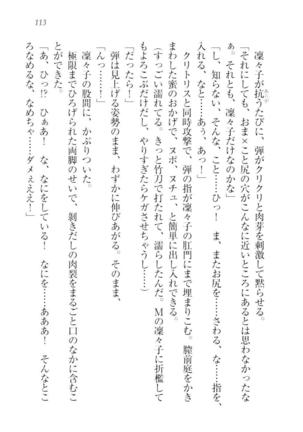 113
凛々子が抗うたびに、弾がクリクリと肉芽を刺激して黙らせる。
「それにしても、おま×こと尻の穴がこんなに近いところにあるとは思わなかったな
ぁ。それとも、凛々子だけなのかな」
「し、知らない、そんな、こと……ひっ！　ま、またお尻を……さわる、な……指を、
入れる、なと……あぅ、あっ！」
クリトリスと同時攻撃で、弾の指が凛々子の肛門にまで埋まりこむ。膣前庭をかき
まわした蜜のおかげで、ヌポ、ヌチュ、と簡単に出し入れできる。
（すっごい濡れてる。きっと竹刀で打たれて、濡らしたんだ。Ｍの凛々子に折檻して
もよろこぶだけだし、やりすぎたらケガさせちゃうし……）
「だったら！」
弾は見上げる姿勢のまま、わずかに伸びあがる。そのまま、
「んっ……！」
凛々子の股間に、かぶりついた。
極限までひろげられた両脚のせいで、剥きだしの肉裂をまるごと口のなかに含むこ
とができた。
「あ、ひっ!?　ひぁあ！　な、なにをしている！　そんなとこ
ろなめるな、なめちゃ……ダメぇぇえ！」